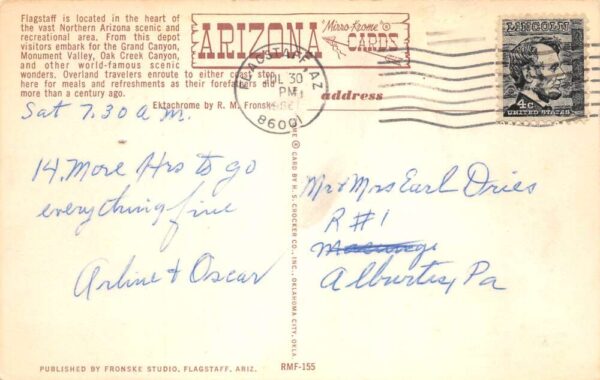 Flagstaff is located in the heart of
the vast Northern Arizona scenic and
recreational area. From this depot
visitors embark for the Grand Canyon,
Monument Valley, Oak Creek Canyon,
and other world-famous scenic
wonders. Overland travelers enroute to either coast stop
here for meals and refreshments as their forefathers did
more than a century ago.
Ektachrome by R. M. Fronske
Sat 7.30 a.m.
14, More Hrs to go
everything fine
Arline + Oscar
PUBLISHED BY FRONSKE STUDIO, FLAGSTAFF, ARIZ.
ARIZONA "Mirro-Krome"® CARDS
FLAGSTAFF, AZ
JUL 30
PM
86001
address
LINCOLN
4c
UNITED STATES
® CARD BY H. S. CROCKER CO., INC., OKLAHOMA CITY, OKLA.
Mr & Mrs Earl Dries
R #1
Alburtis, Pa
RMF-155